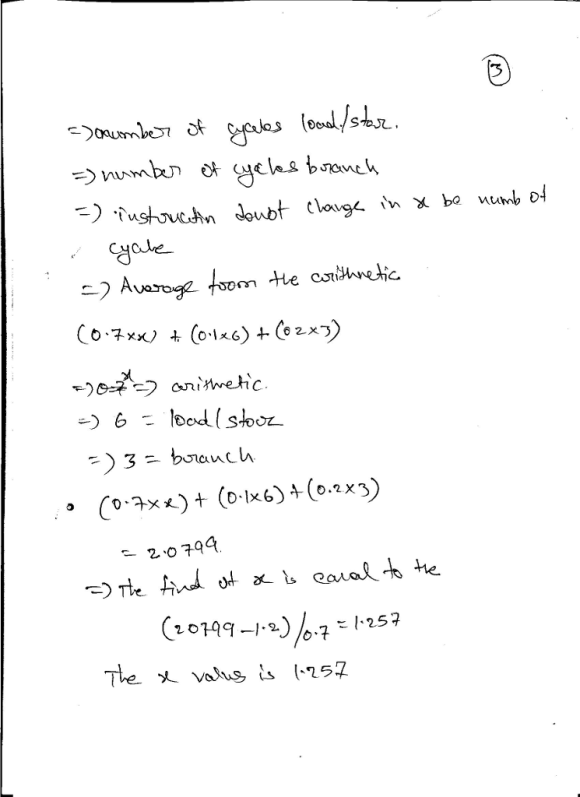 3
=> number of cycles load/stor.
=> number of cycles branch
=) instruction doubt change in x be numb of
cycle
=) Average from the arithmetic
(0.7xx) + (0.1x6) + (02x3)
=) x => arithmetic.
=) 6 = load/stoor
=) 3 = branch
• (0.7xx) + (0.1x6) + (0.2x3)
= 2.0799.
=) The find of x is equal to the
(20799-1.2)/0.7 = 1.257
The x value is 1.257